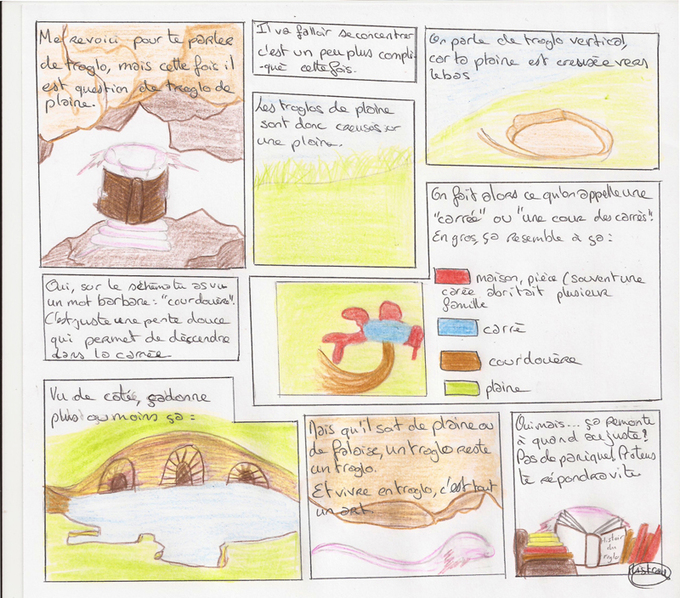 Me revoici pour te parler
de troglo, mais cette fois il
est question de troglo de
plaine.
Il va falloir se concentrer
c'est un peu plus compli-
-qué cette fois.
Les troglos de plaine
sont donc creusés sur
une plaine.
On parle de troglo vertical,
car la plaine est creusée vers
le bas
On fait alors ce qu'on appelle une
"carrée" ou "une cour des carrés".
En gros, ça resemble à ça:
maison, pièce (souvent une
carée abritait plusieur
famille
carrè
courdouère
plaine
Oui, sur le schémate as vu
un mot barbare: "courdouère".
C'est juste une pente douce
qui permet de descendre
dans la carrée
Vu de cotée, ça donne
plus ou moins ça:
Mais qu'il soit de plaine ou
de falaise, un troglo reste
un troglo.
Et vivre en troglo, c'est tout
un art.
Oui mais... ça remonte
à quand au juste?
Pas de panique!
te répondra vite